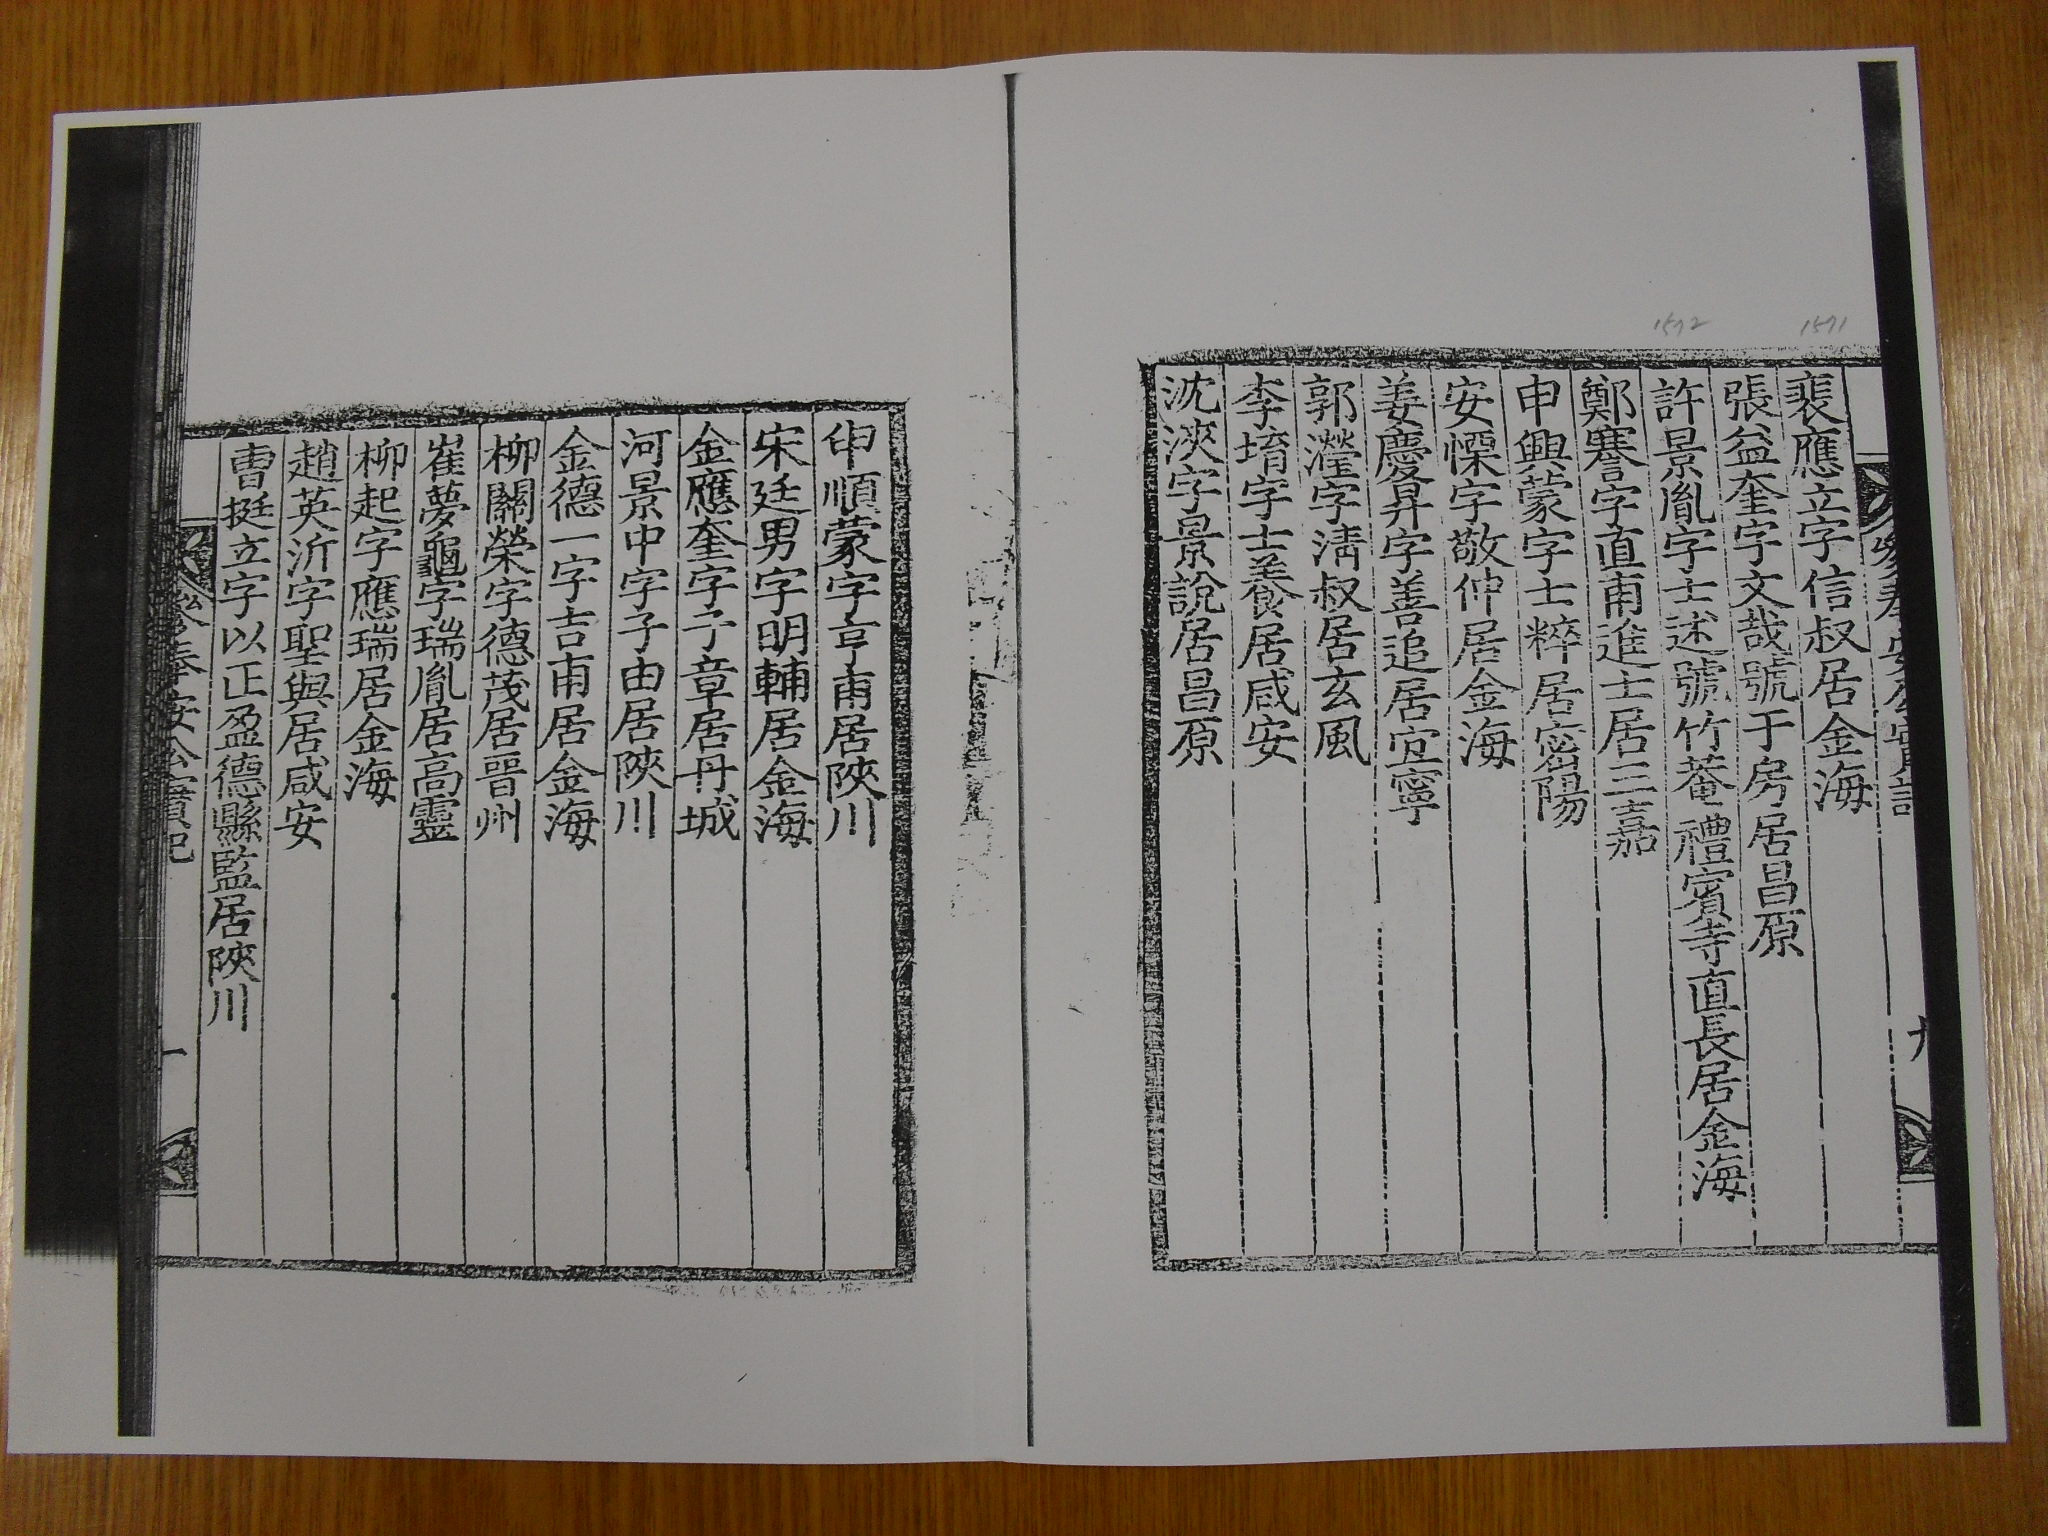 1571
1572
裴應立字信叔居金海
張益奎字文哉號于房居昌原
許景胤字士述號竹菴禮賓寺直長居金海
鄭謇字直甫進士居三嘉
申興蒙字士粹居密陽
安慄字敬仲居金海
姜慶昇字善追居宜寧
郭瀅字淸叔居玄風
李堉字士養居咸安
沈浹字景說居昌原
申順蒙字亨甫居陜川
宋廷男字明輔居金海
金應奎字子章居丹城
河景中字子由居陜川
金德一字吉甫居金海
柳闢榮字德茂居晉州
崔夢龜字瑞胤居高靈
柳起字應瑞居金海
趙英沂字聖與居咸安
曺挺立字以正盈德縣監居陜川
奉安公實記